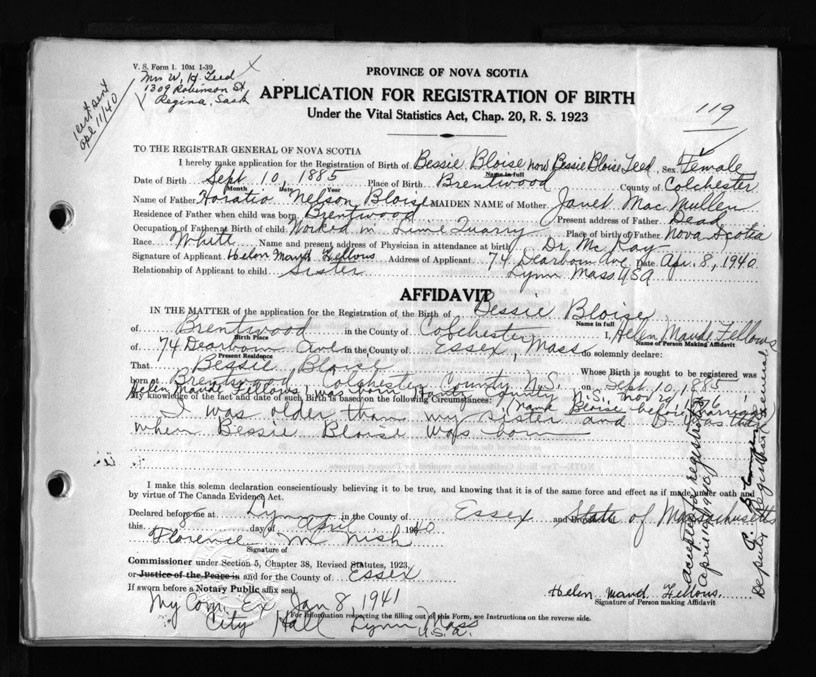 V. S. Form 1. 10M 1-39
Mrs W. H. Teed
1309 Robinson St.
Regina, Sask
1 cert sent
Apl 11/40
PROVINCE OF NOVA SCOTIA
APPLICATION FOR REGISTRATION OF BIRTH
Under the Vital Statistics Act, Chap. 20, R. S. 1923
119
TO THE REGISTRAR GENERAL OF NOVA SCOTIA
I hereby make application for the Registration of Birth of Bessie Bloise now Bessie Bloise Teed, Sex Female
Name in full
Date of Birth Sept 10, 1885 Place of Birth Brentwood County of Colchester
Month Date Year
Name of Father Horatio Nelson Bloise MAIDEN NAME of Mother Janet MacMullen
Residence of Father when child was born Brentwood Present address of Father Dead
Occupation of Father at Birth of child Worked in Lime Quarry Place of birth of Father Nova Scotia
Race White Name and present address of Physician in attendance at birth Dr. McKay
Signature of Applicant Helen Maud Fellows Address of Applicant 74 Dearborn Ave Date Apr. 8, 1940
Relationship of Applicant to child Sister Lynn Mass USA
AFFIDAVIT
IN THE MATTER of the application for the Registration of the Birth of Bessie Bloise
Name in full
of Brentwood in the County of Colchester I, Helen Maude Fellows
Birth Place Name of Person Making Affidavit
of 74 Dearborn Ave in the County of Essex, Mass do solemnly declare:
Present Residence
That Bessie Bloise Whose Birth is sought to be registered was
born at Brentwood, Colchester County N.S. on Sept 10, 1885
Helen Maude Fellows, I was born N.S. Nov 29, 1876
My knowledge of the fact and date of such Birth is based on the following Circumstances: (name Bloise before marriage)
I was older than my sister and I was there
when Bessie Bloise was born
I make this solemn declaration conscientiously believing it to be true, and knowing that it is of the same force and effect as if made under oath and
by virtue of The Canada Evidence Act.
Declared before me at Lynn in the County of Essex and State of Massachusetts
this 8 day of April 1940
Florence M Nish
Signature of
Commissioner under Section 5, Chapter 38, Revised Statutes, 1923
or Justice of the Peace in and for the County of Essex
If sworn before a Notary Public affix seal
My Com. Ex Jan 8, 1941
City Hall Lynn Mass
U.S.A.
Helen Maud Fellows
Signature of Person making Affidavit
For information respecting the filling out of this Form, see Instructions on the reverse side.
accepted for registration
April 11 1940
Deputy Registrar General